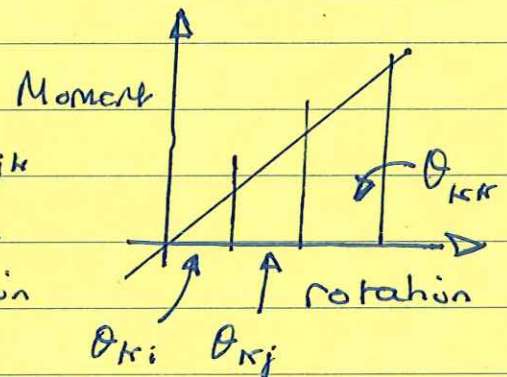 Moment
θKK
rotation
θKi θKj